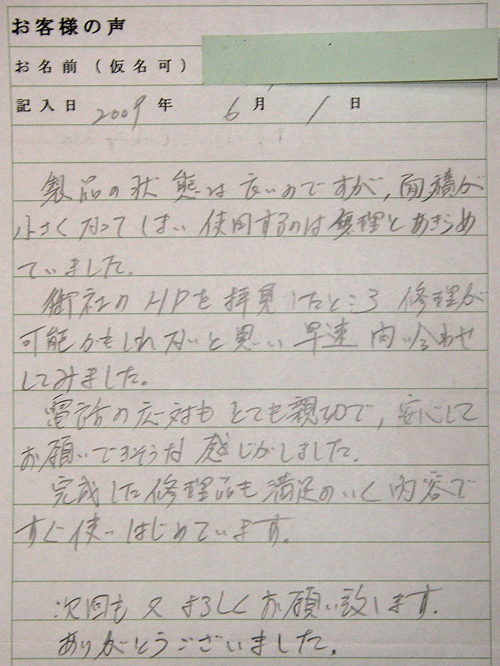 お客様の声
お名前（仮名可）
記入日 2009 年 6 月 1 日
製品の状態は良いのですが、面積が
小さくなってしまい使用するのは無理とあきらめ
ていました。
御社のHPを拝見したところ修理が
可能かもしれないと思い早速問い合わせ
してみました。
電話の応対もとても親切で、安心して
お願いできそうな感じがしました。
完成した修理品も満足のいく内容で
すぐ使いはじめています。
次回も又よろしくお願い致します。
ありがとうございました。